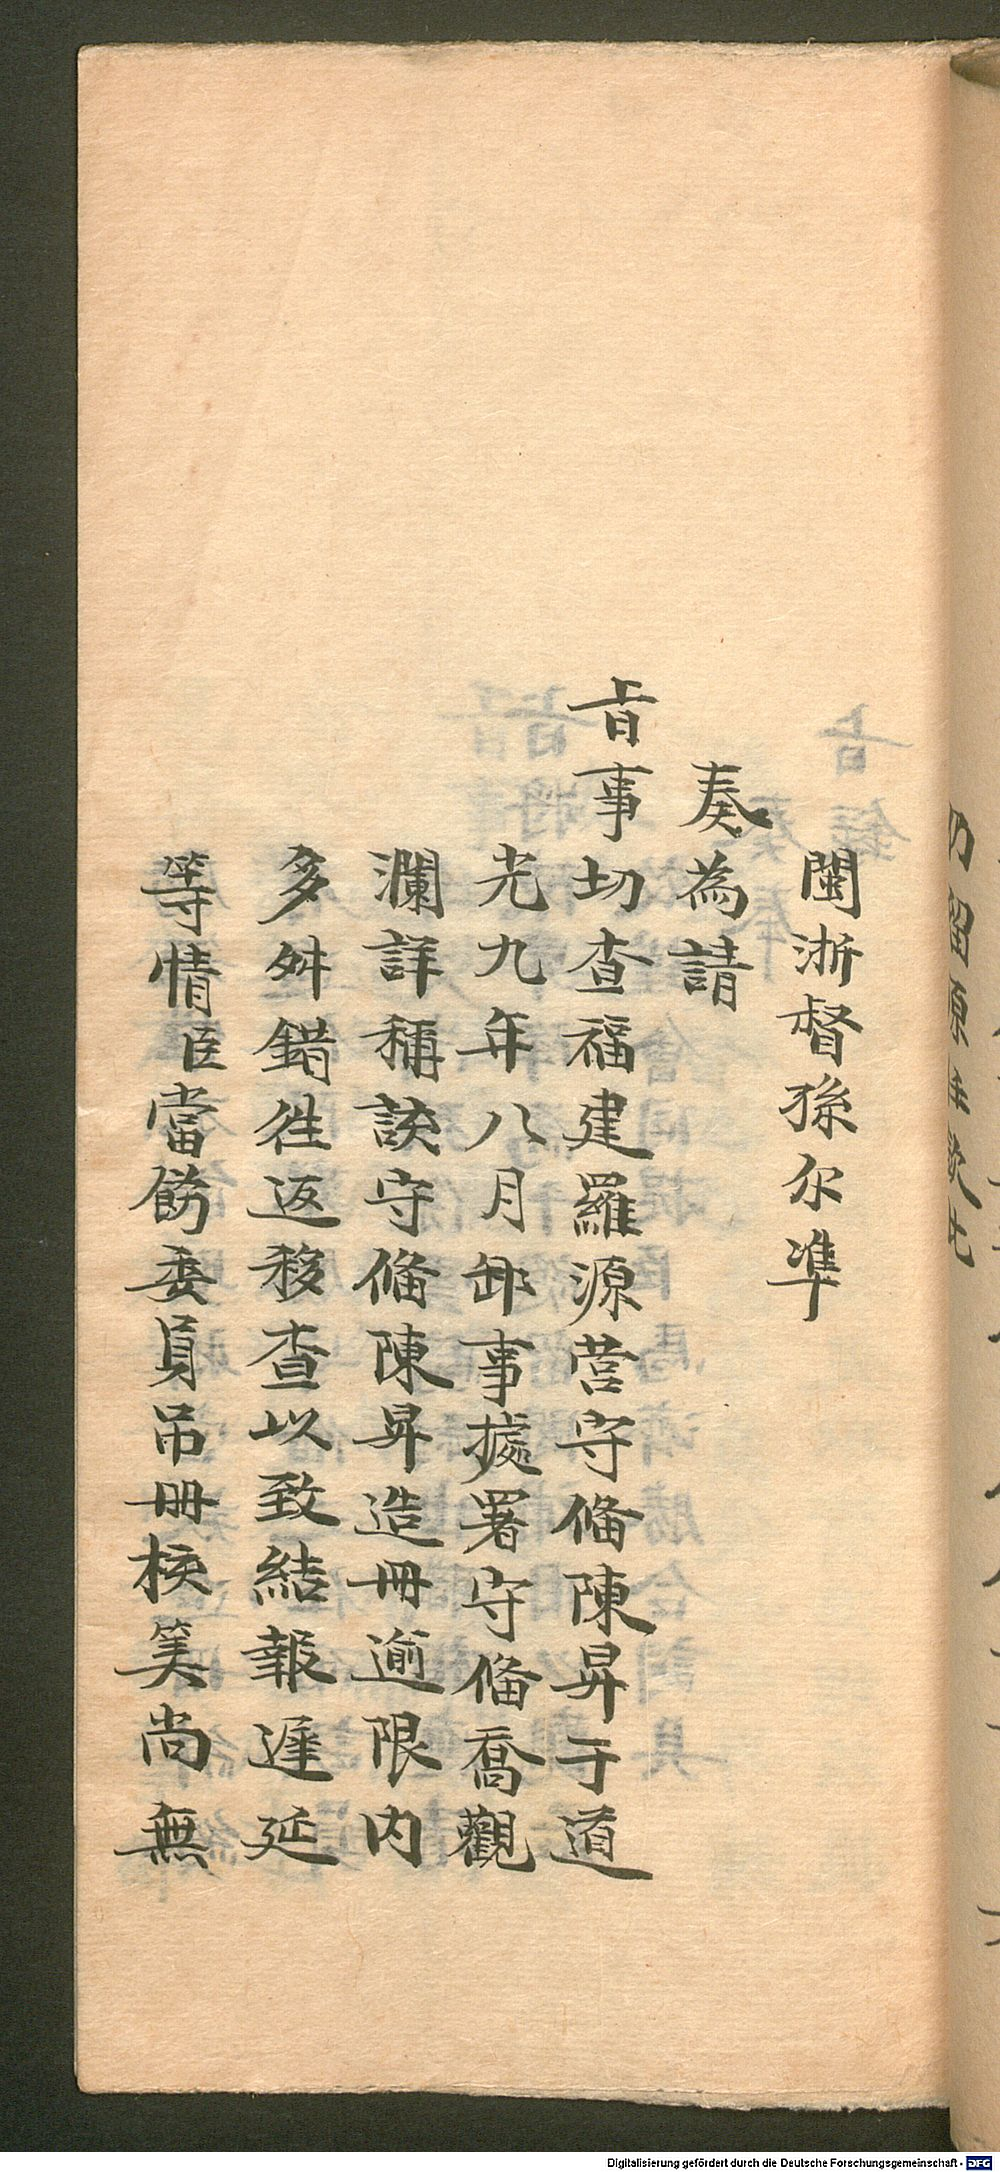 閩浙督孫尔準
奏為請
旨事切查福建羅源营守俻陳昇于道
光九年八月卸事㨿署守俻喬觀
瀾詳稱該守俻陳昇造冊逾限内
多舛錯徃返移查以致結報遲延
等情臣當飭委員吊冊核筭尚無
Digitalisierung gefördert durch die Deutsche Forschungsgemeinschaft - DFG